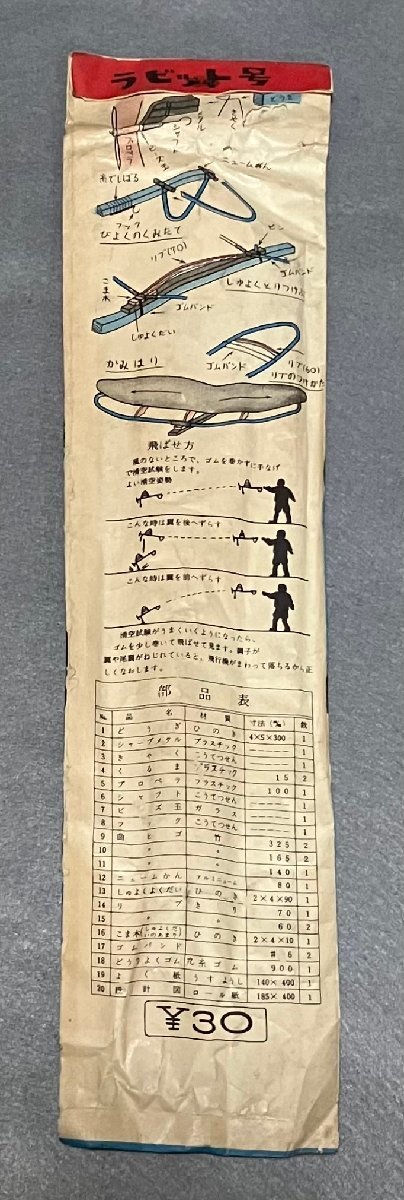 ラビット号
どうぎ
プロペラ
ビーズ玉
シャフト
きゃく
糸でしばる
ニュームかん
フック
びよくのくみたて
リブ(70)
ピン
ゴムバンド
しゅよくとりつけ
こま木
ゴムバンド
しゅよくだい
リブ(60)
ゴムバンド
リブのつけかた
かみはり
飛ばせ方
風のないところで、ゴムを巻かずに手なげ
で滑空試験をします。
よい滑空姿勢
こんな時は翼を後へずらす
こんな時は翼を前へずらす
滑空試験がうまくいくようになったら、
ゴムを少し巻いて飛ばせて見ます。調子が
翼や尾翼がねじれていると、飛行機がまわって落ちるから正
しくなおします。
部品表
No. 品名 材質 寸法(%) 数
1 どうぎ ひのき 4×5×300 1
2 シャープメタル プラスチック ――― 1
3 きゃく こうてつせん ――― 1
4 くるま プラスチック 15 2
5 プロペラ プラスチック 100 1
6 シャフト こうてつせん ――― 1
7 ビーズ玉 ガラス ――― 1
8 フック こうてつせん ――― 1
9 曲ヒゴ 竹 325 2
10 〃 〃 165 2
11 〃 〃 140 1
12 ニュームかん アルミニューム 80 1
13 しゅよくよくだい ひのき 2×4×90 1
14 リブ きり 70 1
15 〃 〃 60 2
16 こま木(しゅよくだいのあまり) ひのき 2×4×10 1
17 ゴムバンド #6 2
18 どうりょくゴム 糸ゴム 900 1
19 よく紙 うすようし 140×490 1
20 設計図 ロール紙 185×400 1
¥30